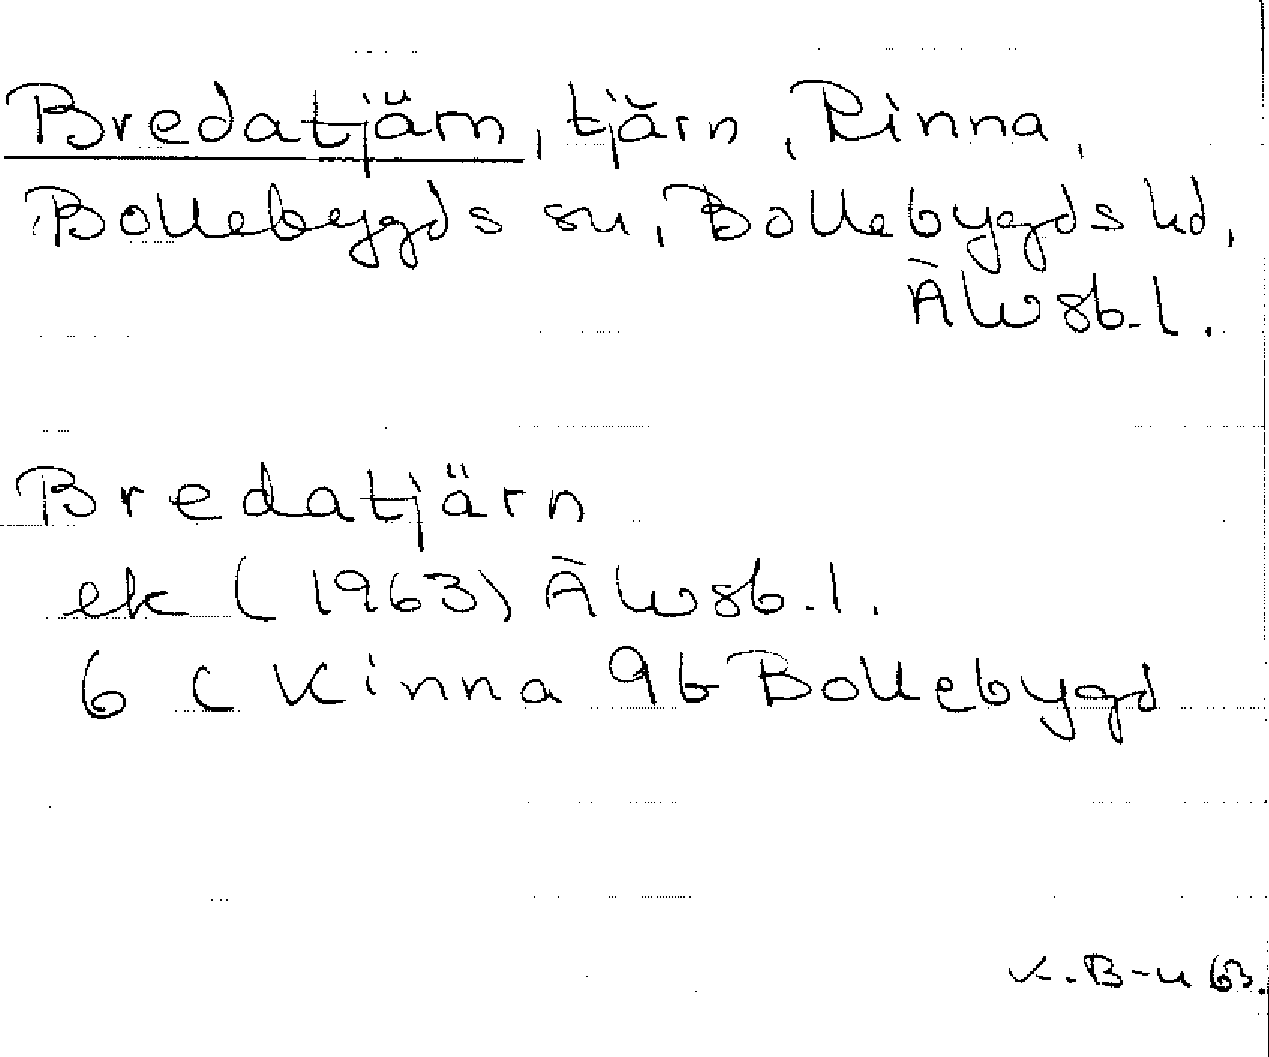 Bredatjärn, tjärn, Rinna,
Bollebygds sn, Bollebygds hd,
Älvsb.l.
Bredatjärn
ek (1963) Älvsb.l.
6 C Kinna 9b Bollebygd
K.B-n 63.